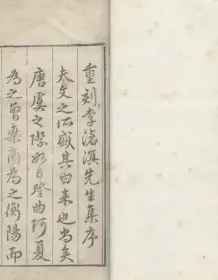 重刻李滄溟先生集序
夫文之所盛其由来也尚矣
唐虞之際始自登曲阿夏
為之曾桑商為之衡陽而